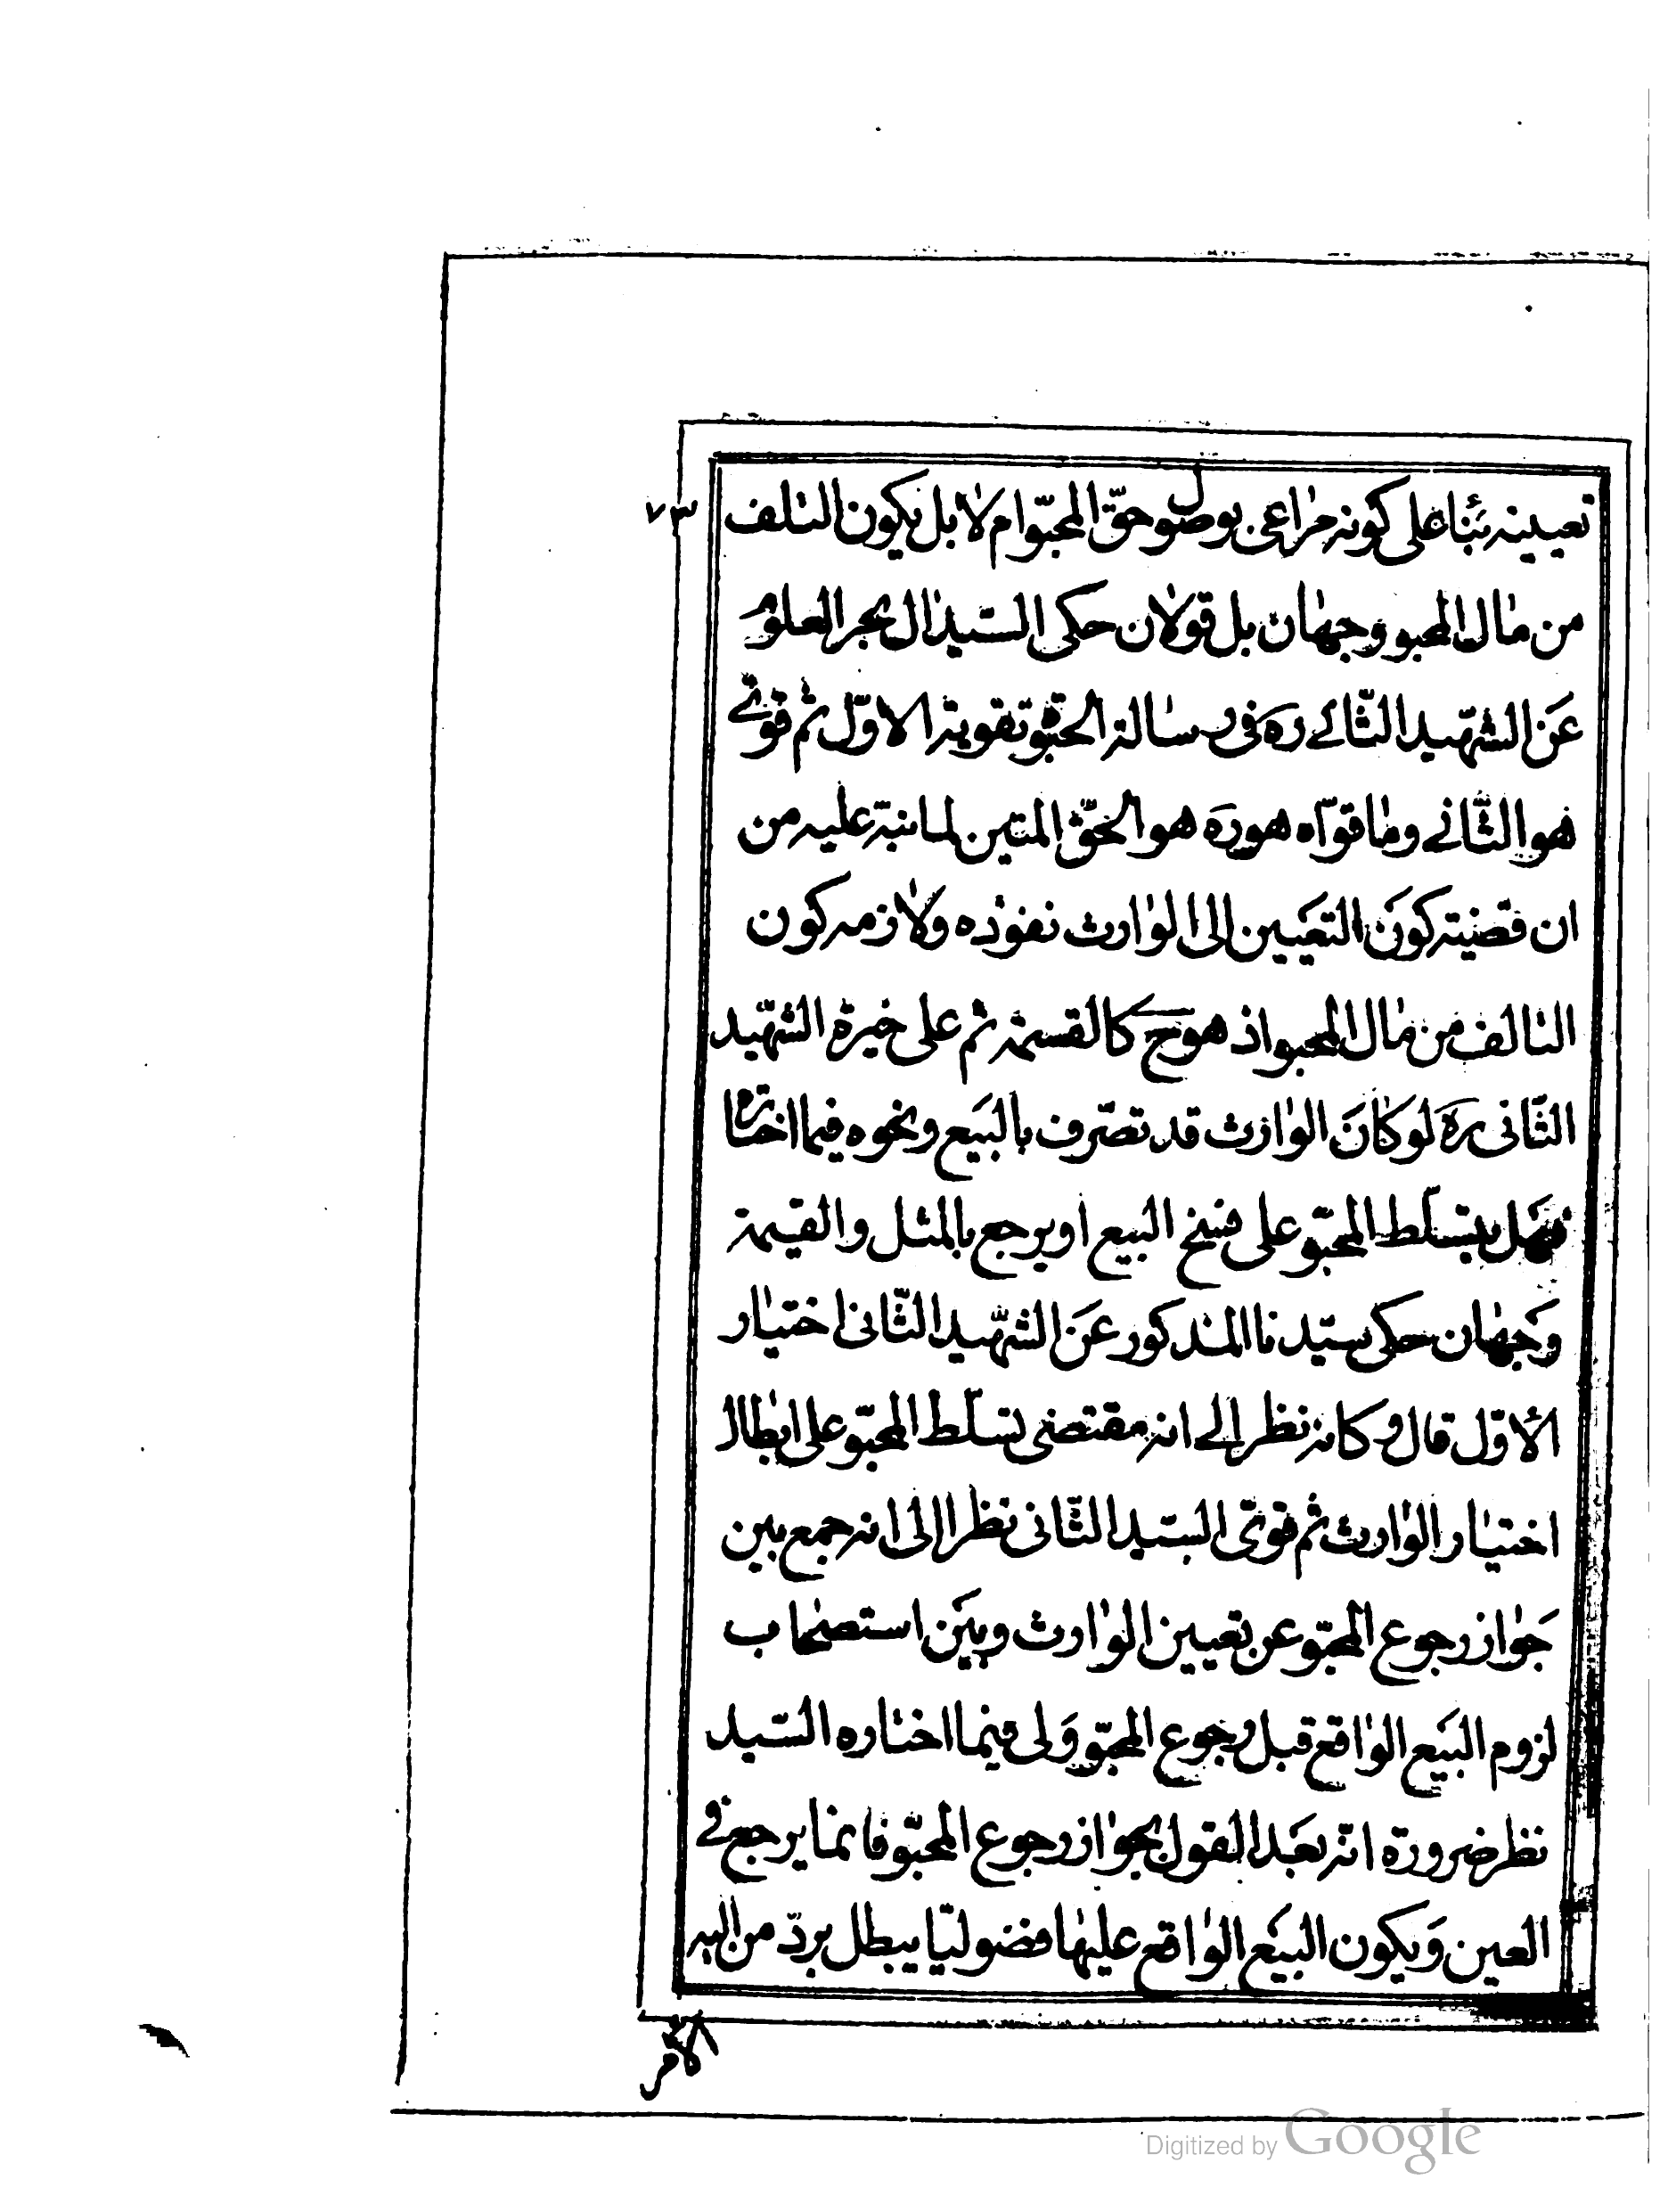 ٧٣
تعيينه بناء على كونه مراعى بوصول حق المحبّو ام لا بل يكون التلف
من مال المحبو وجهان بل قولان حكى السّيد ال بحر العلوم
عن الشهيد الثاني ره فى رسالة الحبوة تقوية الاوّل ثم قوّى
هو الثّاني وما قوّاه هو ره هو الحقّ المتين لما نبّه عليه من
ان قضيته كون التعيين الى الوارث نفوذه ولازمه كون
التالف من مال المحبو اذ هو ح كالقسمة ثم على خيرة الشهيد
الثّانى ره لو كان الوارث قد تصرّف بالبيع ونحوه فيما اختاره
فهل يتسلّط المحبّو على فسخ البيع او يرجع بالمثل والقيمة
وجهان حكى سيّدنا المذكور عن الشهيد الثّانى اختيار
الأوّل قال وكانه نظر الى انه مقتضى تسلّط المحبّو على ابطال
اختيار الوارث ثم قوّى السيّد الثّانى نظرا الى انه جمع بين
جواز رجوع المحبّو عن تعيين الوارث وبين استصحاب
لزوم البيع الواقع قبل رجوع المحبّو ولى فيما اختاره السّيد
نظر ضرورة انّه بعد القول بجواز رجوع المحبّو فانما يرجع في
العين ويكون البيع الواقع عليها فضوليّا يبطل بردّ من اليه
الامر
Digitized by Google